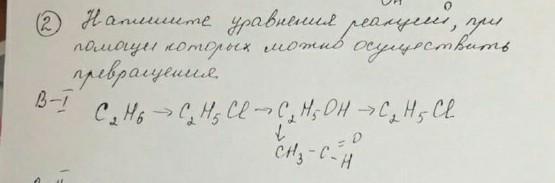 ② Напишите уравнения реакций, при
помощи которых можно осуществить
превращения
В-I C₂H₆ → C₂H₅Cl → C₂H₅OH → C₂H₅Cl
↓
CH₃-C=O
-H